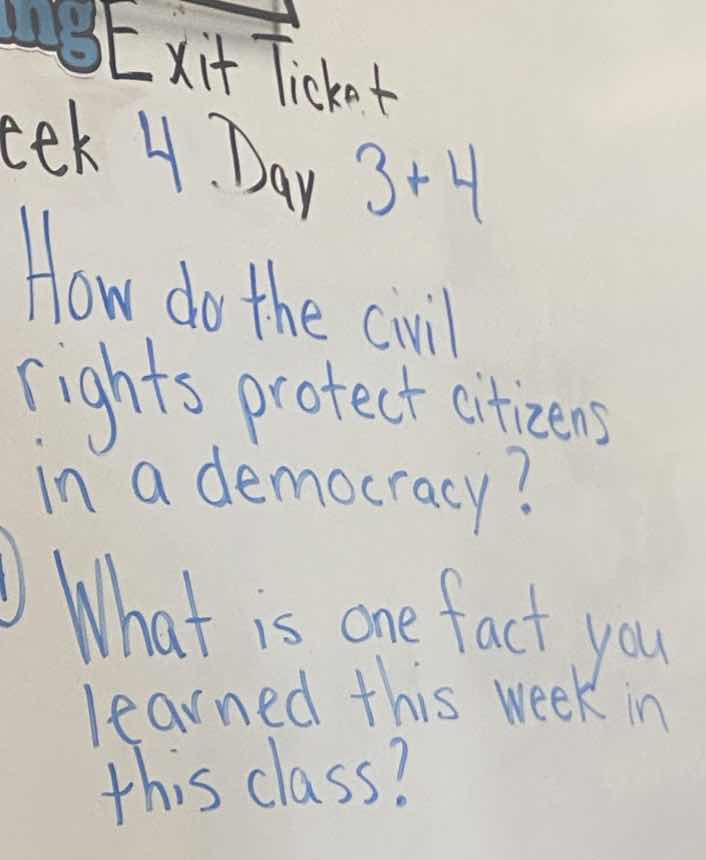 ing Exit Ticket
eek 4 Day 3+4
How do the civil
rights protect citizens
in a democracy?
What is one fact you
learned this week in
this class?